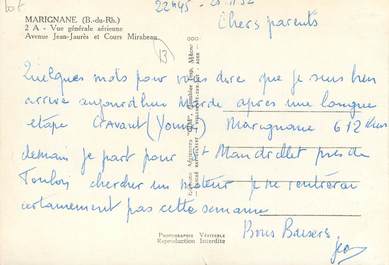 lot
MARIGNANE. (B.-du-Rh.)
2 A - Vue générale aérienne
Avenue Jean-Jaurès et Cours Mirabeau
22445
Chers parents
13
Quelques mots pour vous dire que je suis bien
arrivé aujourdhui Marde après une longue
étape Cravant (Yonne) Marignane 612 Kms
demain je part pour Mandrillet près de
Toulon chercher un moteur je ne rentrerai
certainement pas cette semaine
Bons Baisers
Jean
PHOTOGRAPHIE VÉRITABLE
Reproduction Interdite